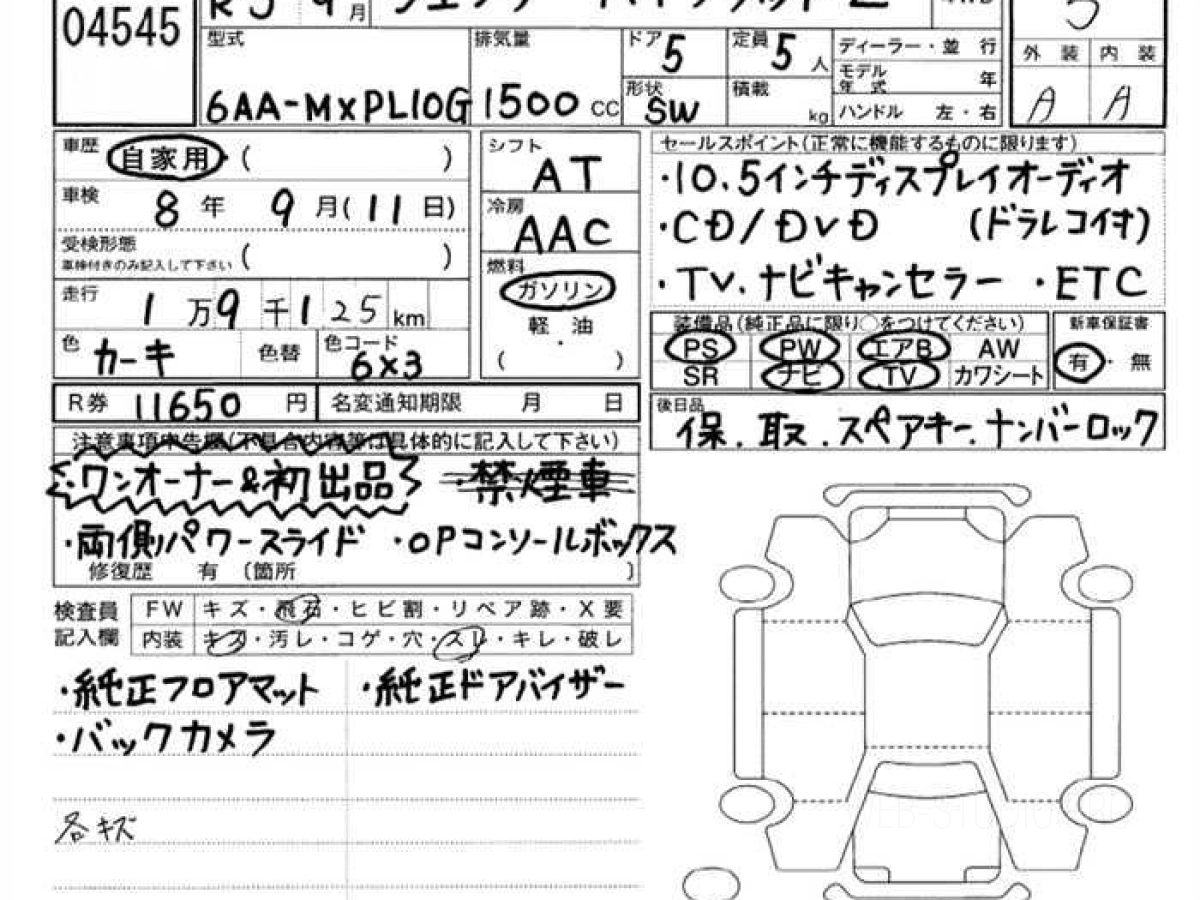 04545
R5 9月
型式 6AA-MXPL10G
排気量 1500 CC
ドア 5
定員 5 人
形状 SW
積載 kg
ディーラー・並 行
モデル年式 年
ハンドル 左・右
5
外 装 内 装
A A
車歴 自家用 ( )
車検 8 年 9 月(11 日)
受検形態
車検付きのみ記入して下さい ( )
走行 1 万 9 千 1 25 km
色 カーキ 色替 色コード 6X3
シフト AT
冷房 AAC
燃料 ガソリン
軽・油
( )
セールスポイント(正常に機能するものに限ります)
・10.5インチディスプレイオーディオ
・CD/DVD (ドラレコイオ)
・TV.ナビキャンセラー ・ETC
装備品(純正品に限り○をつけてください)
PS PW エアB AW
SR ナビ TV カワシート
新車保証書
有・無
後日品
保.取.スペアキー.ナンバーロック
R券 11650 円 名変通知期限 月 日
注意事項申告欄(不具合内容等は具体的に記入して下さい)
・ワンオーナー&初出品 ・禁煙車
・両側パワースライド ・OPコンソールボックス
修復歴 有 (箇所 )
検査員記入欄
FW キズ・飛石・ヒビ割・リペア跡・X要
内装 キズ・汚レ・コゲ・穴・スレ・キレ・破レ
・純正フロアマット ・純正ドアバイザー
・バックカメラ
各キズ